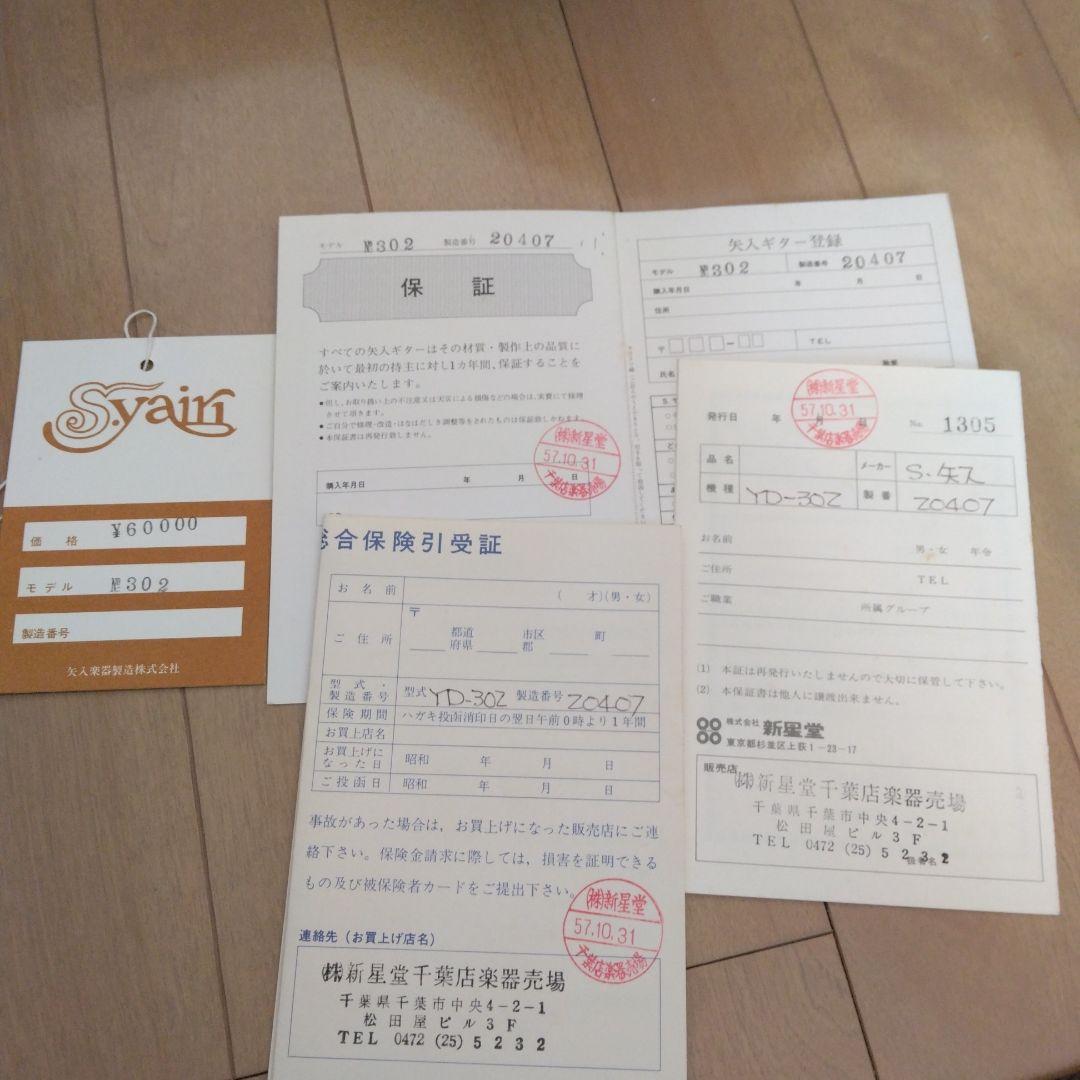 S.yairi
価格 ¥60000
モデル №302
製造番号
矢入楽器製造株式会社
モデル №302 製造番号 20407
保証
すべての矢入ギターはその材質・製作上の品質に
於いて最初の持主に対し1カ年間、保証することを
ご案内いたします。
●但し、お取り扱い上の不注意又は天災による損傷などの場合は、実費にて修理
させて頂きます。
●ご自分で修理・改造・はなはだしき調整等をされたものは保証致しかねます。
●本保証書は再発行致しません。
購入年月日 年 月 日
㈱新星堂
57.10.31
千葉店楽器売場
矢入ギター登録
モデル №302 製造番号 20407
購入年月日 年 月 日
住所
〒 TEL
氏名 職業
発行日 年 月 日 No. 1305
㈱新星堂
57.10.31
千葉店楽器売場
品名 メーカー S.矢入
機種 YD-302 製番 20407
お名前 男・女 年令
ご住所 TEL
ご職業 所属グループ
(1) 本証は再発行いたしませんので大切に保管して下さい。
(2) 本保証書は他人に譲渡出来ません。
株式会社 新星堂
東京都杉並区上荻1-23-17
販売店
㈱新星堂千葉店楽器売場
千葉県千葉市中央4-2-1
松田屋ビル3F
TEL 0472 (25) 5232
扱者名
総合保険引受証
お名前 ( 才)(男・女)
ご住所 〒 都道府県 市区郡 町
型式・製造番号 型式 YD-302 製造番号 20407
保険期間 ハガキ投函消印日の翌日午前0時より1年間
お買上店名
お買上げになった日 昭和 年 月 日
ご投函日 昭和 年 月 日
事故があった場合は、お買上げになった販売店にご連
絡下さい。保険金請求に際しては、損害を証明できる
もの及び被保険者カードをご提出下さい。
㈱新星堂
57.10.31
千葉店楽器売場
連絡先(お買上げ店名)
㈱新星堂千葉店楽器売場
千葉県千葉市中央4-2-1
松田屋ビル3F
TEL 0472 (25) 5232